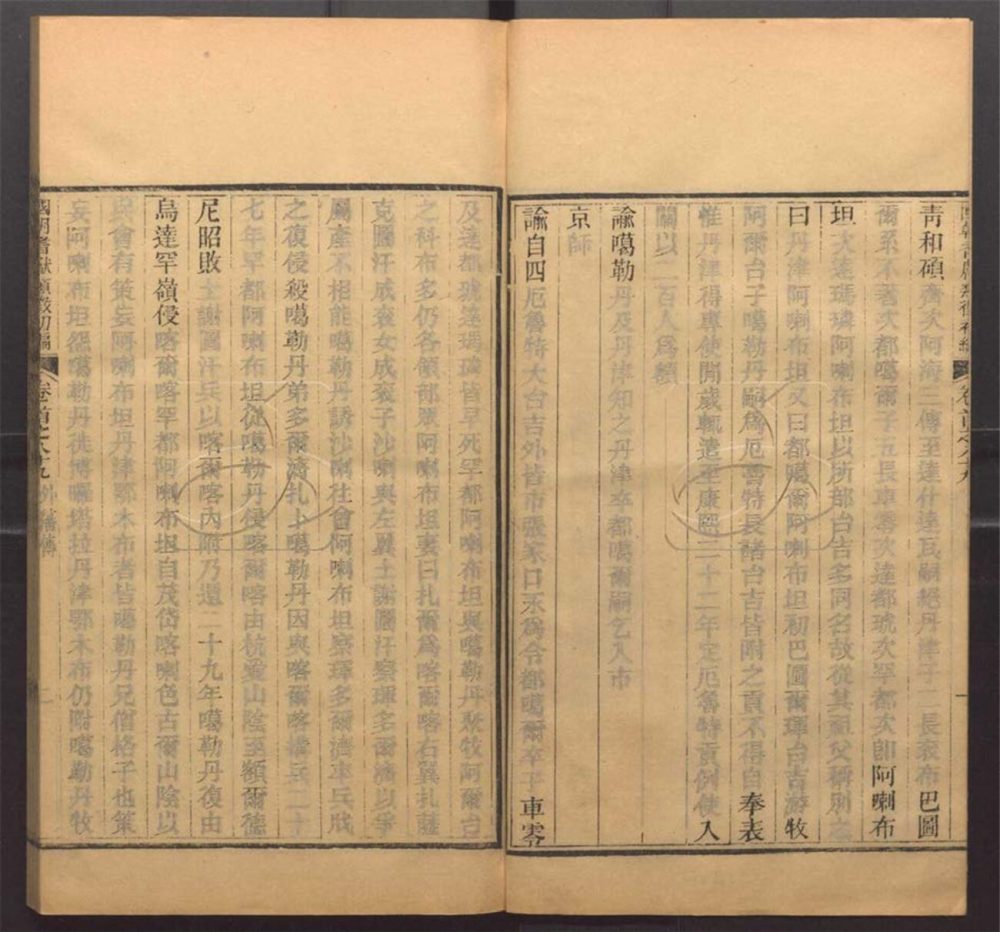 青和碩齊次阿海三傳至達什達瓦嗣絕丹津子二長袞布巴圖
爾系不著次都噶爾子五長車零次達都琥次罕都次即阿喇布
坦次達瑪璘阿喇布坦以所部台吉多同名故從其祖父稱別之
曰丹津阿喇布坦父曰都噶爾阿喇布坦初巴圖爾琿台吉游牧
阿爾台子噶勒丹嗣為厄魯特長諸台吉皆附之貢不得自奉表
惟丹津得專使間歲輒遣至康熙二十二年定厄魯特貢例使入
關以二百人為額
諭噶勒丹及丹津知之丹津卒都噶爾嗣乞入市
京師
諭自四厄魯特大台吉外皆市張家口永為令都噶爾卒子車零
及達都琥達瑪璘皆早死罕都阿喇布坦與噶勒丹聚牧阿爾台
之科布多仍各領部眾阿喇布坦妻曰扎爾為喀爾喀右翼扎薩
克圖汗成袞女成袞子沙喇與左翼土謝圖汗察琿多爾濟以爭
屬產不相能噶勒丹誘沙喇往會阿喇布坦察琿多爾濟率兵戕
之復侵殺噶勒丹弟多爾濟扎卜噶勒丹因與喀爾喀搆兵二十
七年罕都阿喇布坦從噶勒丹侵喀爾喀由杭靄山陰至額爾德
尼昭敗土謝圖汗兵以喀爾喀內附乃還二十九年噶勒丹復由
烏達罕嶺侵喀爾喀罕都阿喇布坦自茂岱喀喇色古爾山陰以
兵會有策妄阿喇布坦丹津鄂木布者皆噶勒丹兄僧格子也策
妄阿喇布坦怨噶勒丹徙博囉塔拉丹津鄂木布仍附噶勒丹牧
國朝耆獻類徵初編 卷首之八十九 外藩傳 二